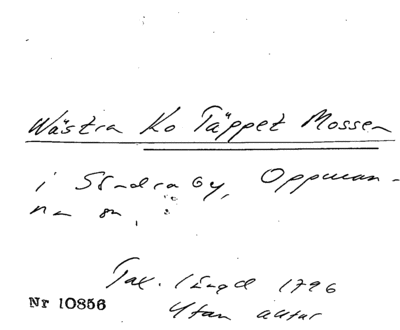 Wästra Ko Täppet Mossen
i Södra by, Oppman-
na sn.
Tax. längd 1796
Utan autor
Nr 10856